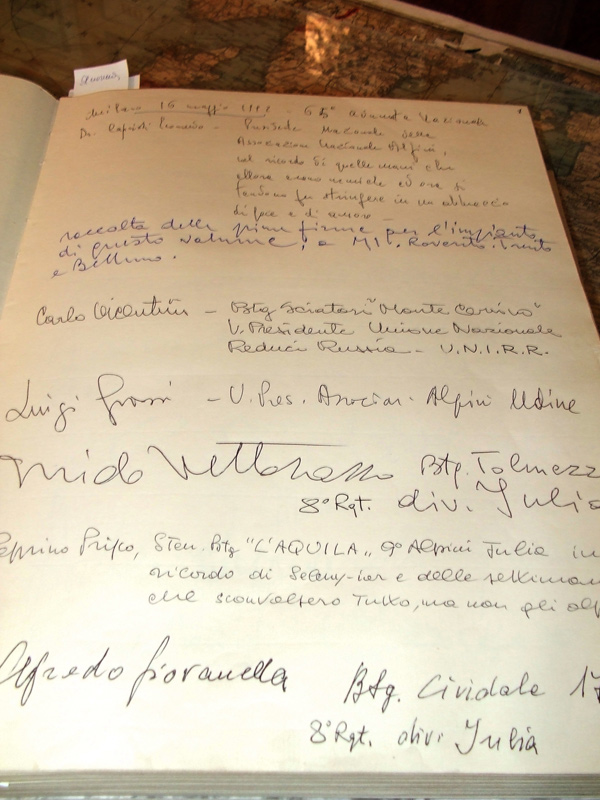 Milano 16 maggio 1992 - 65ª Adunata Nazionale
Dr. Caprioli Leonardo - Presidente Nazionale della
Associazione Nazionale Alpini,
nel ricordo di quelle mani che
allora erano nemiche ed ora si
tendono per stringere in un abbraccio
di pace e di amore -
raccolta delle prime firme per l'impianto
di questo volume, a MI. Rovereto. Trento
e Belluno.
Carlo Vicentini - Btg Sciatori "Monte Cervino"
V. Presidente Unione Nazionale
Reduci Russia - U.N.I.R.R.
Luigi Grossi - V. Pres. Associaz. Alpini Udine
Vettorazzo Btg. Tolmezz
8° Rgt. div. Julia
Peppino Prisco, Sten. Btg "L'AQUILA" 9° Alpini Julia in
ricordo di Seleny-Jar e delle settiman
che sconvolsero tutto, ma non gli alp
Alfredo Fioranella Btg. Cividale 17
8° Rgt. div. Julia